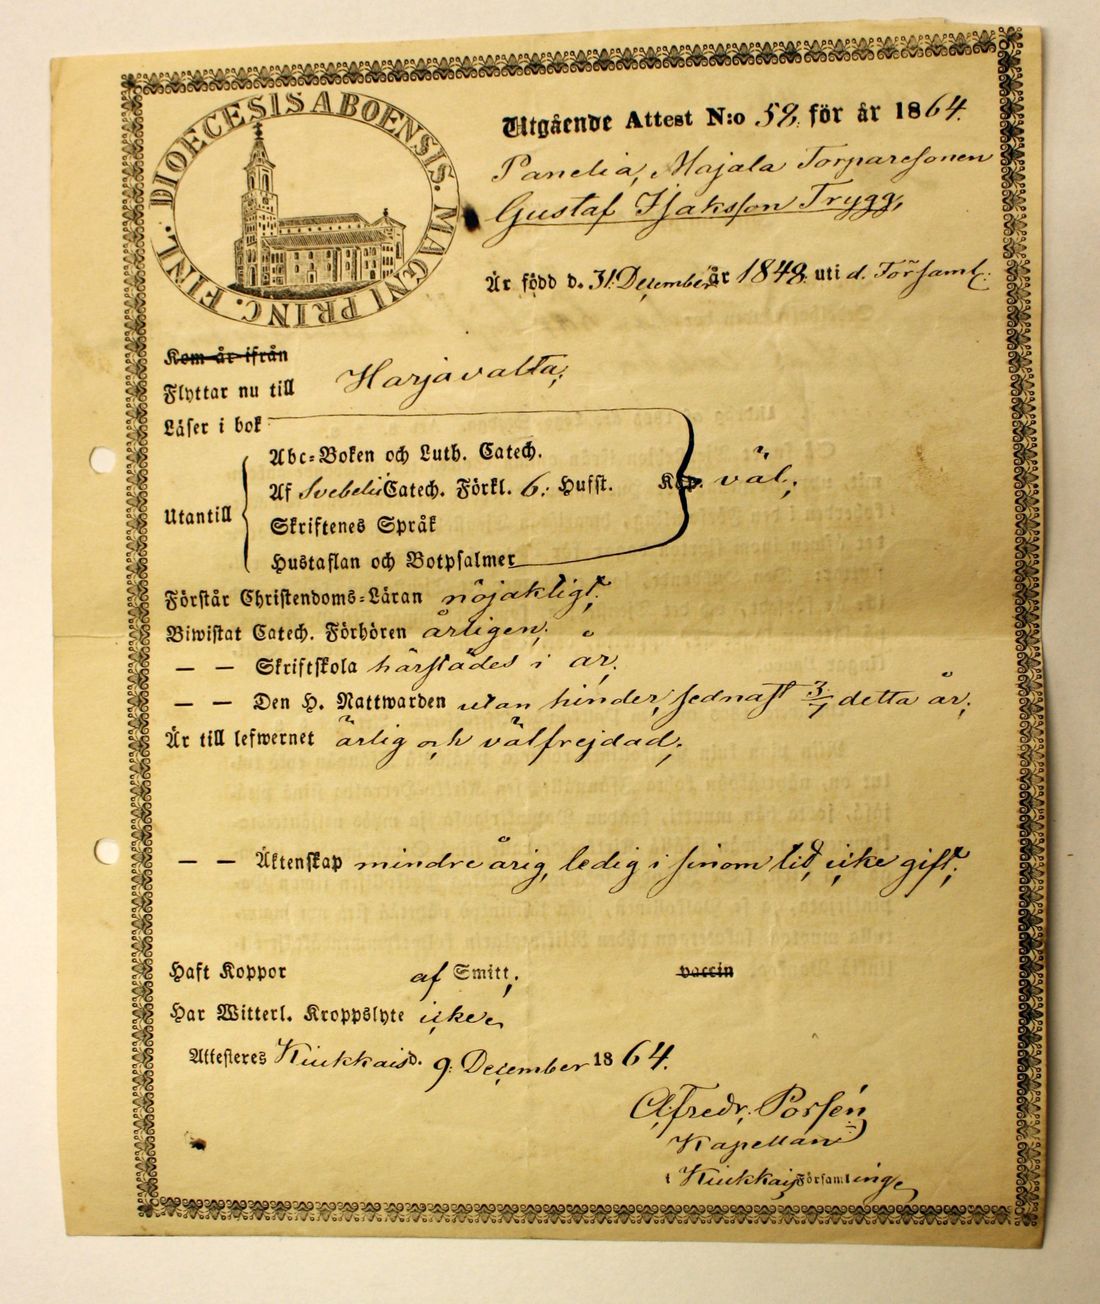 DIOECESIS ABOENSIS. MAGNI PRINC. FINL.
Utgående Attest N:o 58. för år 1864.
Panelia, Majala Torparesonen
Gustaf Isaksson Trygg,
Är född d. 31. December år 1848. uti d. Församl:
Kom år ifrån
Flyttar nu till Harjavalta;
Läser i bok
Abc-Boken och Luth. Catech.
Af Svebelii Catech. Förkl. 6: Husst. Kap. väl;
Utantill
Skriftenes Språk
Hustaflan och Botpsalmer
Förstår Christendoms-Läran nöjaktigt;
Biwistat Catech. Förhören årligen;
— — Skriftskola härstädes i år;
— — Den H. Nattwarden utan hinder, sednast 3/7 detta år;
Är till lefwernet ärlig och välfrejdad;
— — Äktenskap mindreårig, ledig i sinom tid, icke gift;
Haft Koppor af Smitt; vaccin
Har Witterl. Kroppslyte icke,
Attesteres Kiukkais d. 9. December 1864.
Alfredr. Porsén
Kapellan
i Kiukkais Församling,